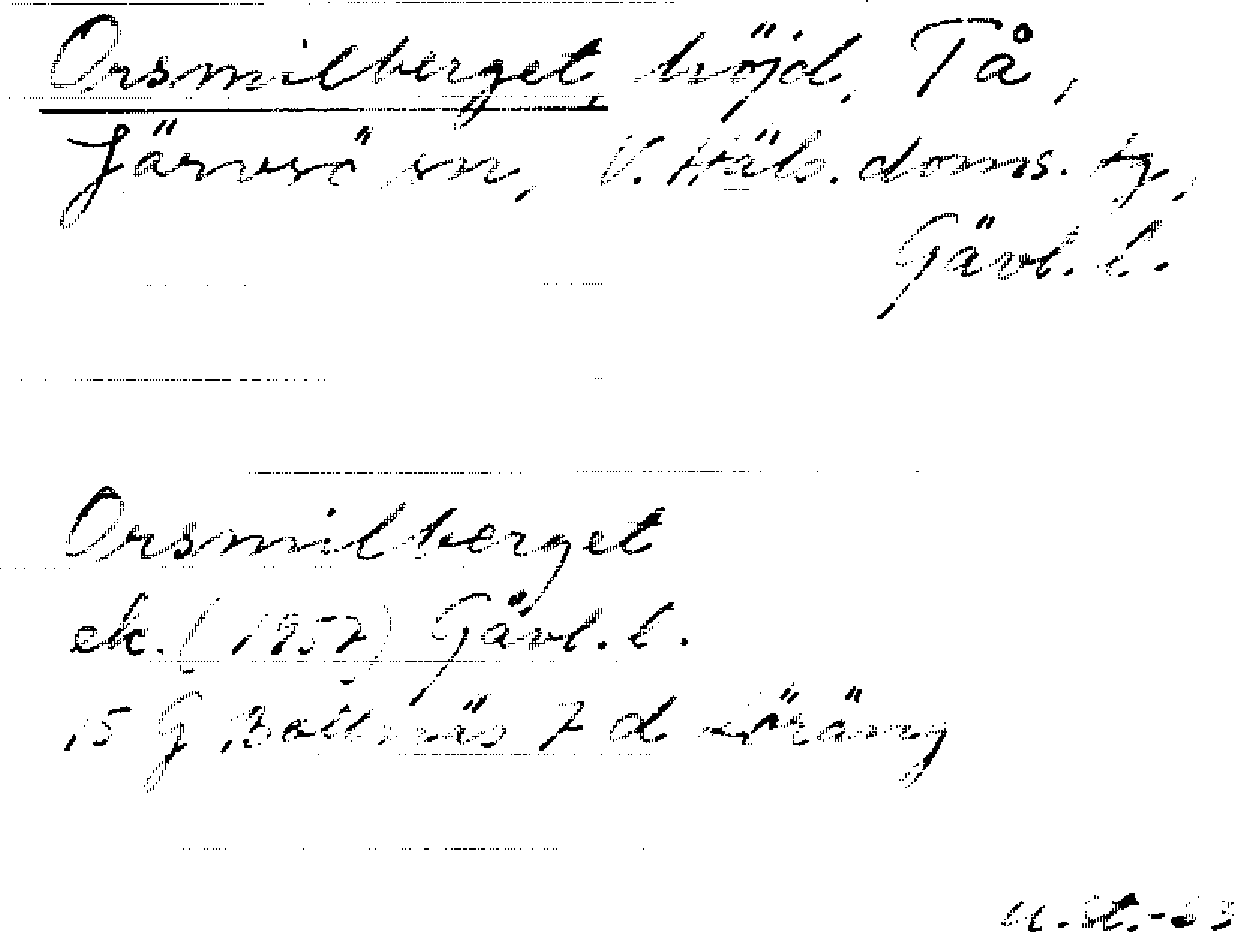 Orsmilberget, höjd, Tå,
Järvsö sn, V. Häls. doms. tg,
Gävl. l.
Orsmilberget
ek. (1957) Gävl. l.
15 G Bollnäs 7 d Löräng
U. St.-63